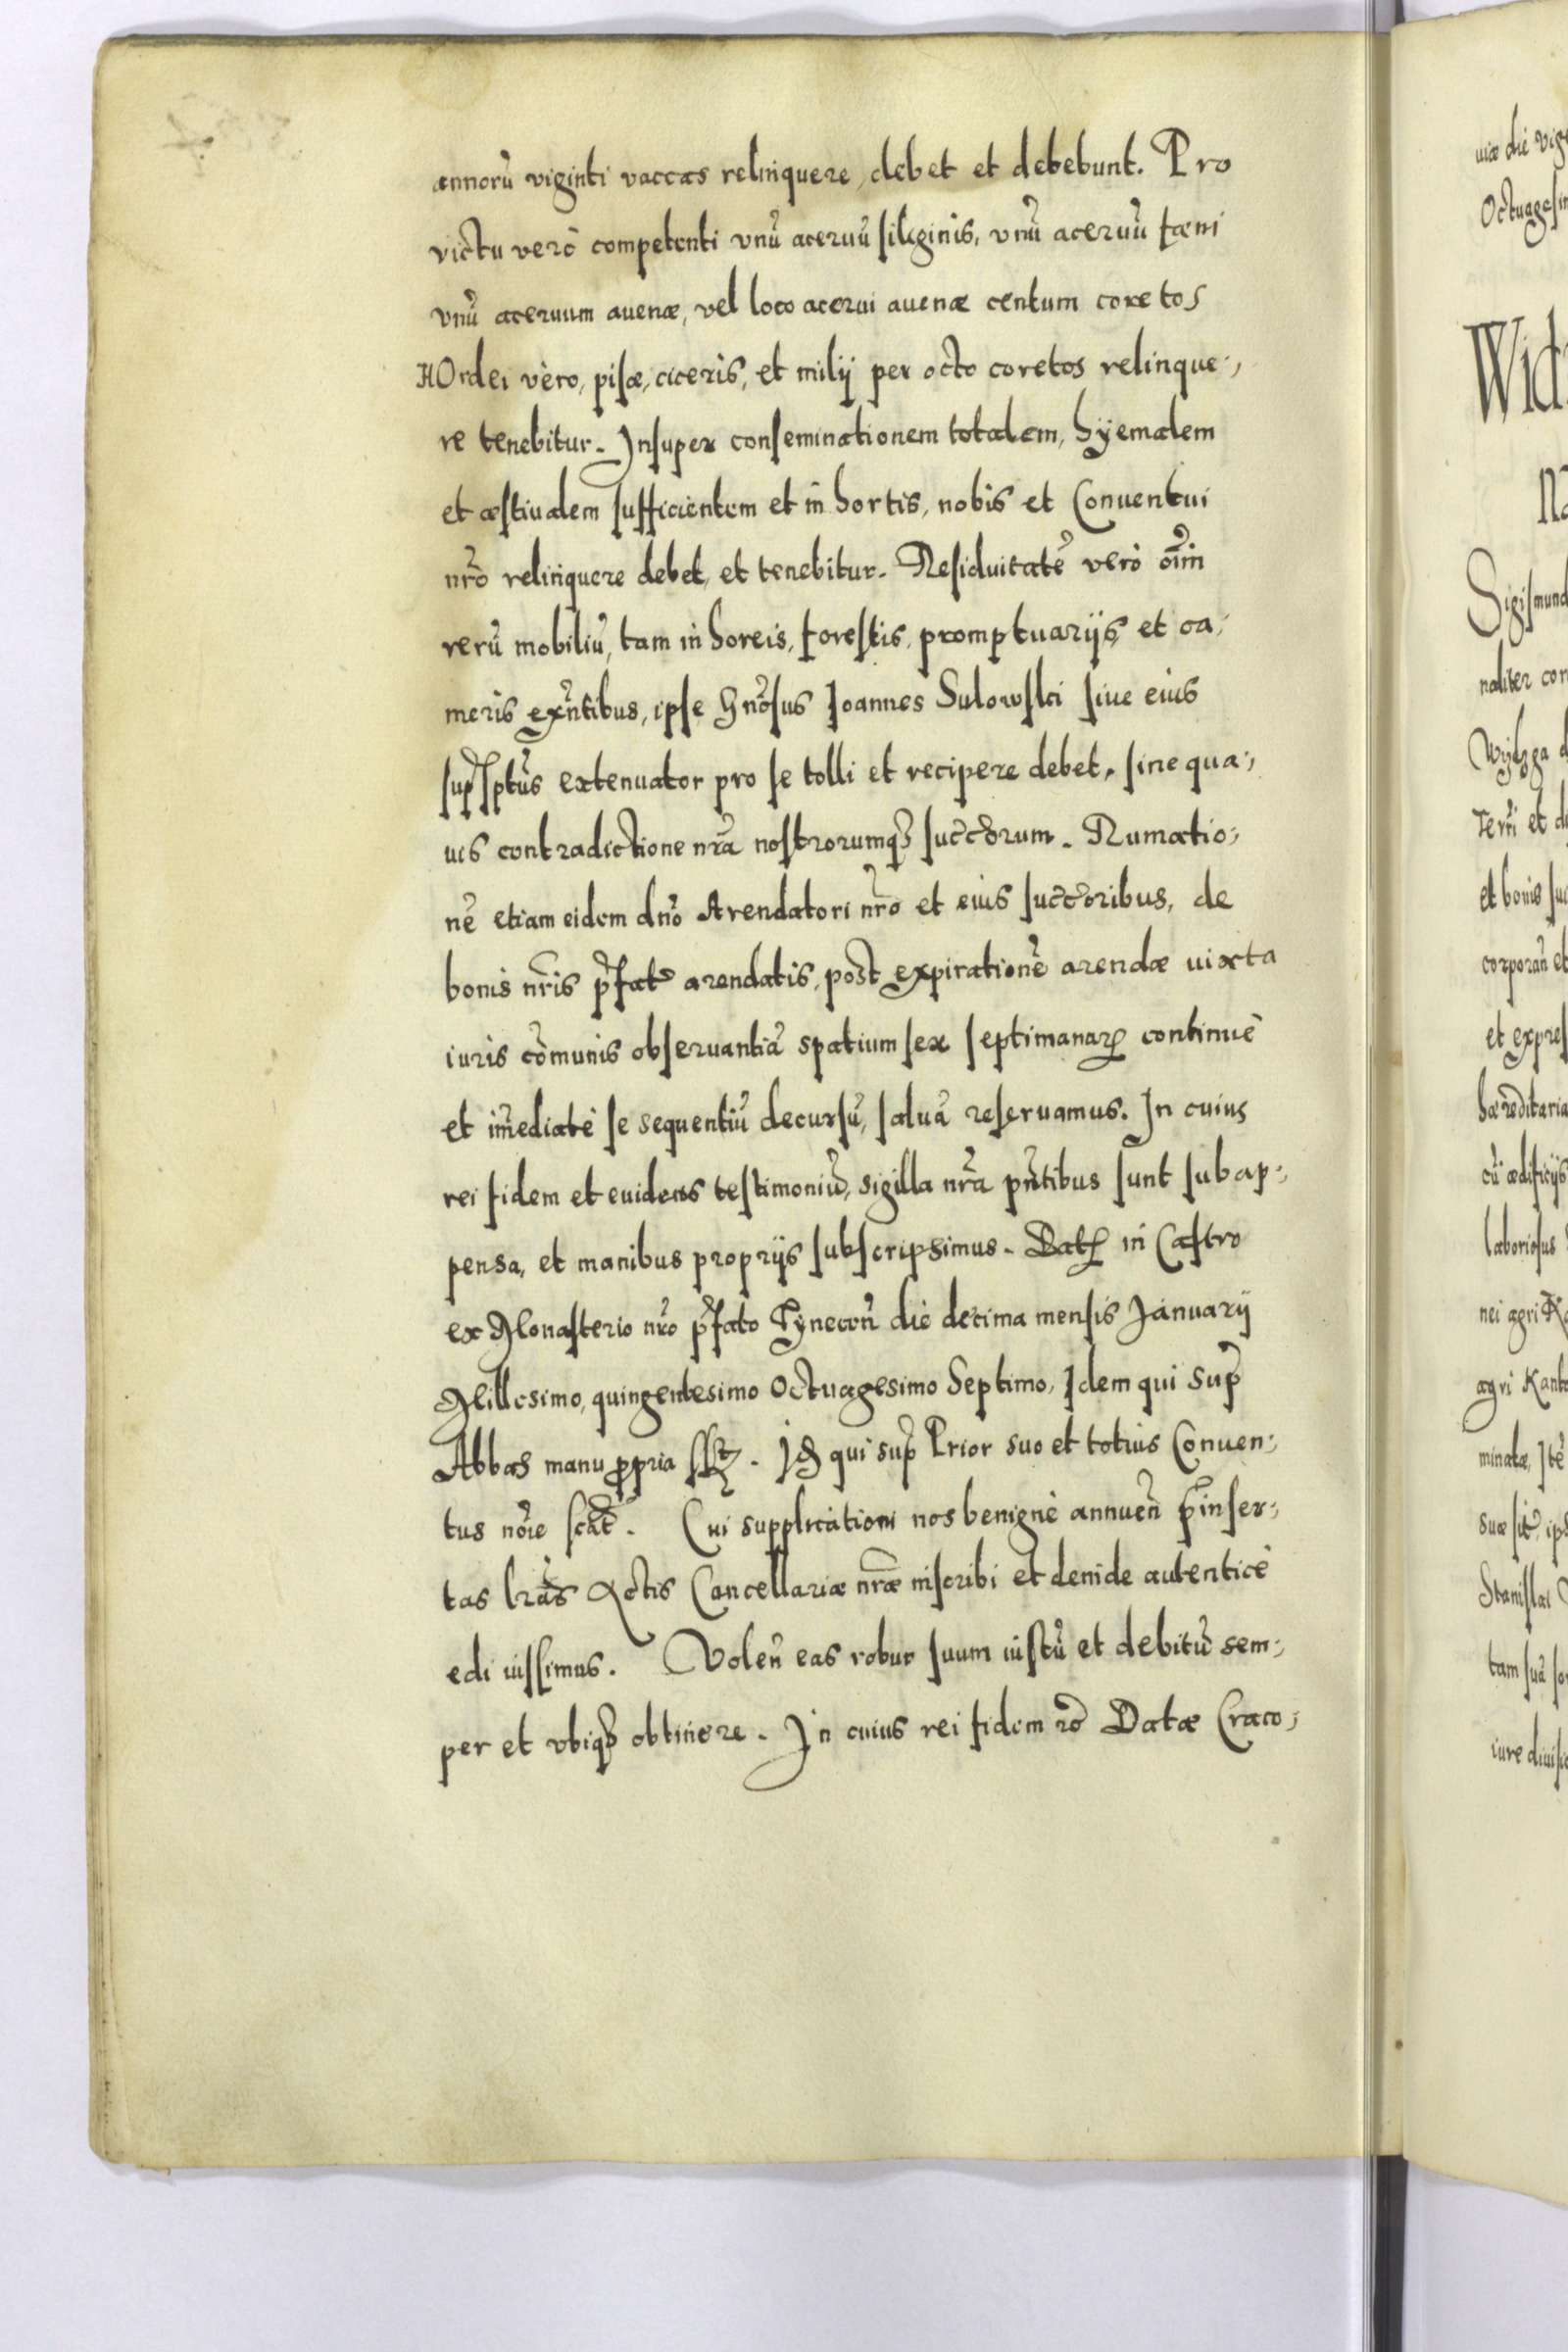 annorũ viginti vaccas relinquere, debet et debebunt. Pro
victu verò competenti vnũ aceruũ siliginis, vnũ aceruũ fæni
vnũ aceruum auenæ, vel loco acerui auenæ centum coretos
HOrdei vèro, pisæ, ciceris, et milij per octo coretos relinque-,
re tenebitur. Insuper conseminationem totalem, hÿemalem
et æstiualem sufficientem et in hortis, nobis et Conuentui
nr̃o relinquere debet, et tenebitur. Residuitatẽ verò oĩm
rerũ mobiliũ, tam in horeis, forestis, promptuarijs, et ca-
meris exñtibus, ipse Gnõsus Joannes Sulowski siue eius
extenuator pro se tolli et recipere debet, sine qua-,
uis contradictione nr̃a nostrorumq3 succc̃orum. Rumatio-,
nẽ etiam eidem dnõ Arendatori nr̃o et eius succc̃oribus, de
bonis nr̃is p̃fat arendatis, post expirationẽ arendæ uixta
iuris cõmunis obseruantiã spatium sex septimanaꝝ continuè
et im̃ediatè se sequentiũ decursũ, saluã reseruamus. In cuius
rei fidem et euidens testimoniũ, sigilla nr̃a pñtibus sunt subap-,
pensa, et manibus proprijs subscripsimus. Datꝝ in Castro
ex Monasterio nr̃o p̃fato Tynecoñ diè decima mensis Januarij
Millesimo, quingentesimo Octuagesimo Septimo, Idem qui sup̃
Abbas manu ꝓpria sst. Id qui sup̃ Prior suo et totius Conuen-,
tus noĩe Cui supplicationi nos benignè annueñ p̃inser-,
tas lr̃as Actis Cancellariæ nr̃æ inscribi et deinde autenticè
edi iussimus. Voleñ eas robur suum iustũ et debitũ sem-,
per et vbiq3 obtinere. In cuius rei fidem Datæ Craco-,
uiæ die
Wid
Sigismund
naliter
et d
et bonis
corporañ et
et expres
hæreditaria
cũ ædificijs
laboriosus
nei agri
agri Kant
minatæ, Itẽ
suæ sit, ips
Stanislai
tam suã
iure diuisio